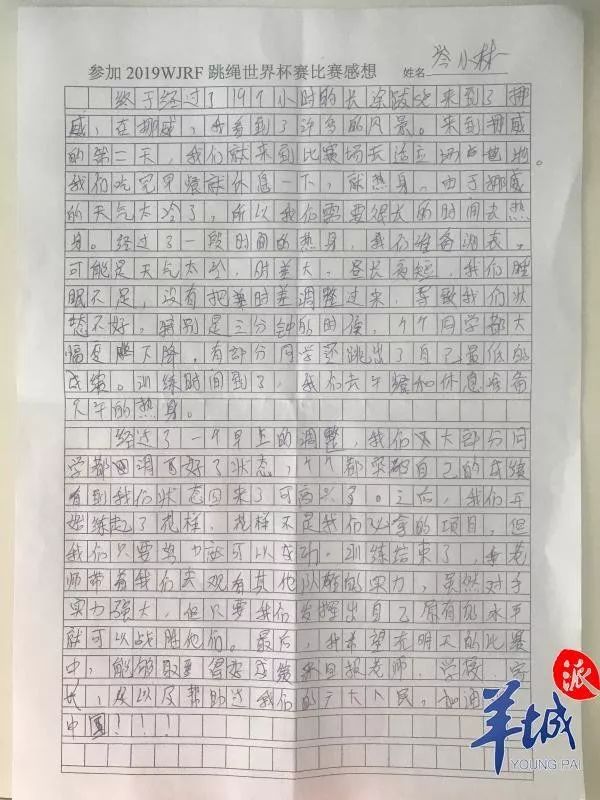 参加2019WJRF跳绳世界杯赛比赛感想 姓名 岑小林
终于经过了19个小时的长途陵 来到了挪
威,在挪威,我看到了许多的风景。来到挪威
的第二天,我们就来到比赛场去适应场地
我们吃完早餐就休息一下,就热身。由于挪威
的天气太冷了,所以我们需要很长的时间去热
身。经过了一段时间的热身,我们准备测表。
可能是天气太冷,时差大,昼长夜短,我们睡
眠不足,没有把 时差调整过来,导致我们状
态不好。特别是三分钟的时候,个个同学都大
幅度 下降,有部分同学 跳出了自己最低的
成绩。训练时间到了,我们去午餐和休息准备
下午的热身。
经过了一个早上的调整,我们 大部分同
学都 调 好了状态,个个都 自己的成绩
看到我们状态回来了可高兴了。之后,我们开
始练起了花样,花样不是我们 拿的项目,但
我们只要努力 可以成功。训练结束了, 老
师带着我们去观看其他 的实力,虽然对手
实力强大,但只要我们发挥出自己原有 水平
就可以战胜他们。最后,我希望在明天的比赛
中,能够取 得好成绩来回报老师,学校,家
长, 以及帮助过我们的广大人民,加油
中国!!!
羊城派
YOUNG PAI